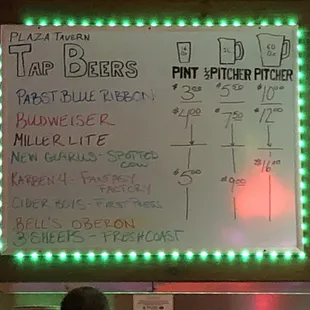 PLAZA TAVERN
TAP BEERS
PINT ½PITCHER PITCHER
PABST BLUE RIBBON $3.00 $5.00 $10.00
BUDWEISER $4.00 $7.50 $12.00
MILLER LITE
NEW GLARUS - SPOTTED COW $16.00
KARBEN 4 - FANTASY FACTORY $5.00 $9.00
CIDER BOYS - FIRST PRESS
BELL'S OBERON
3 SHEEPS - FRESH COAST